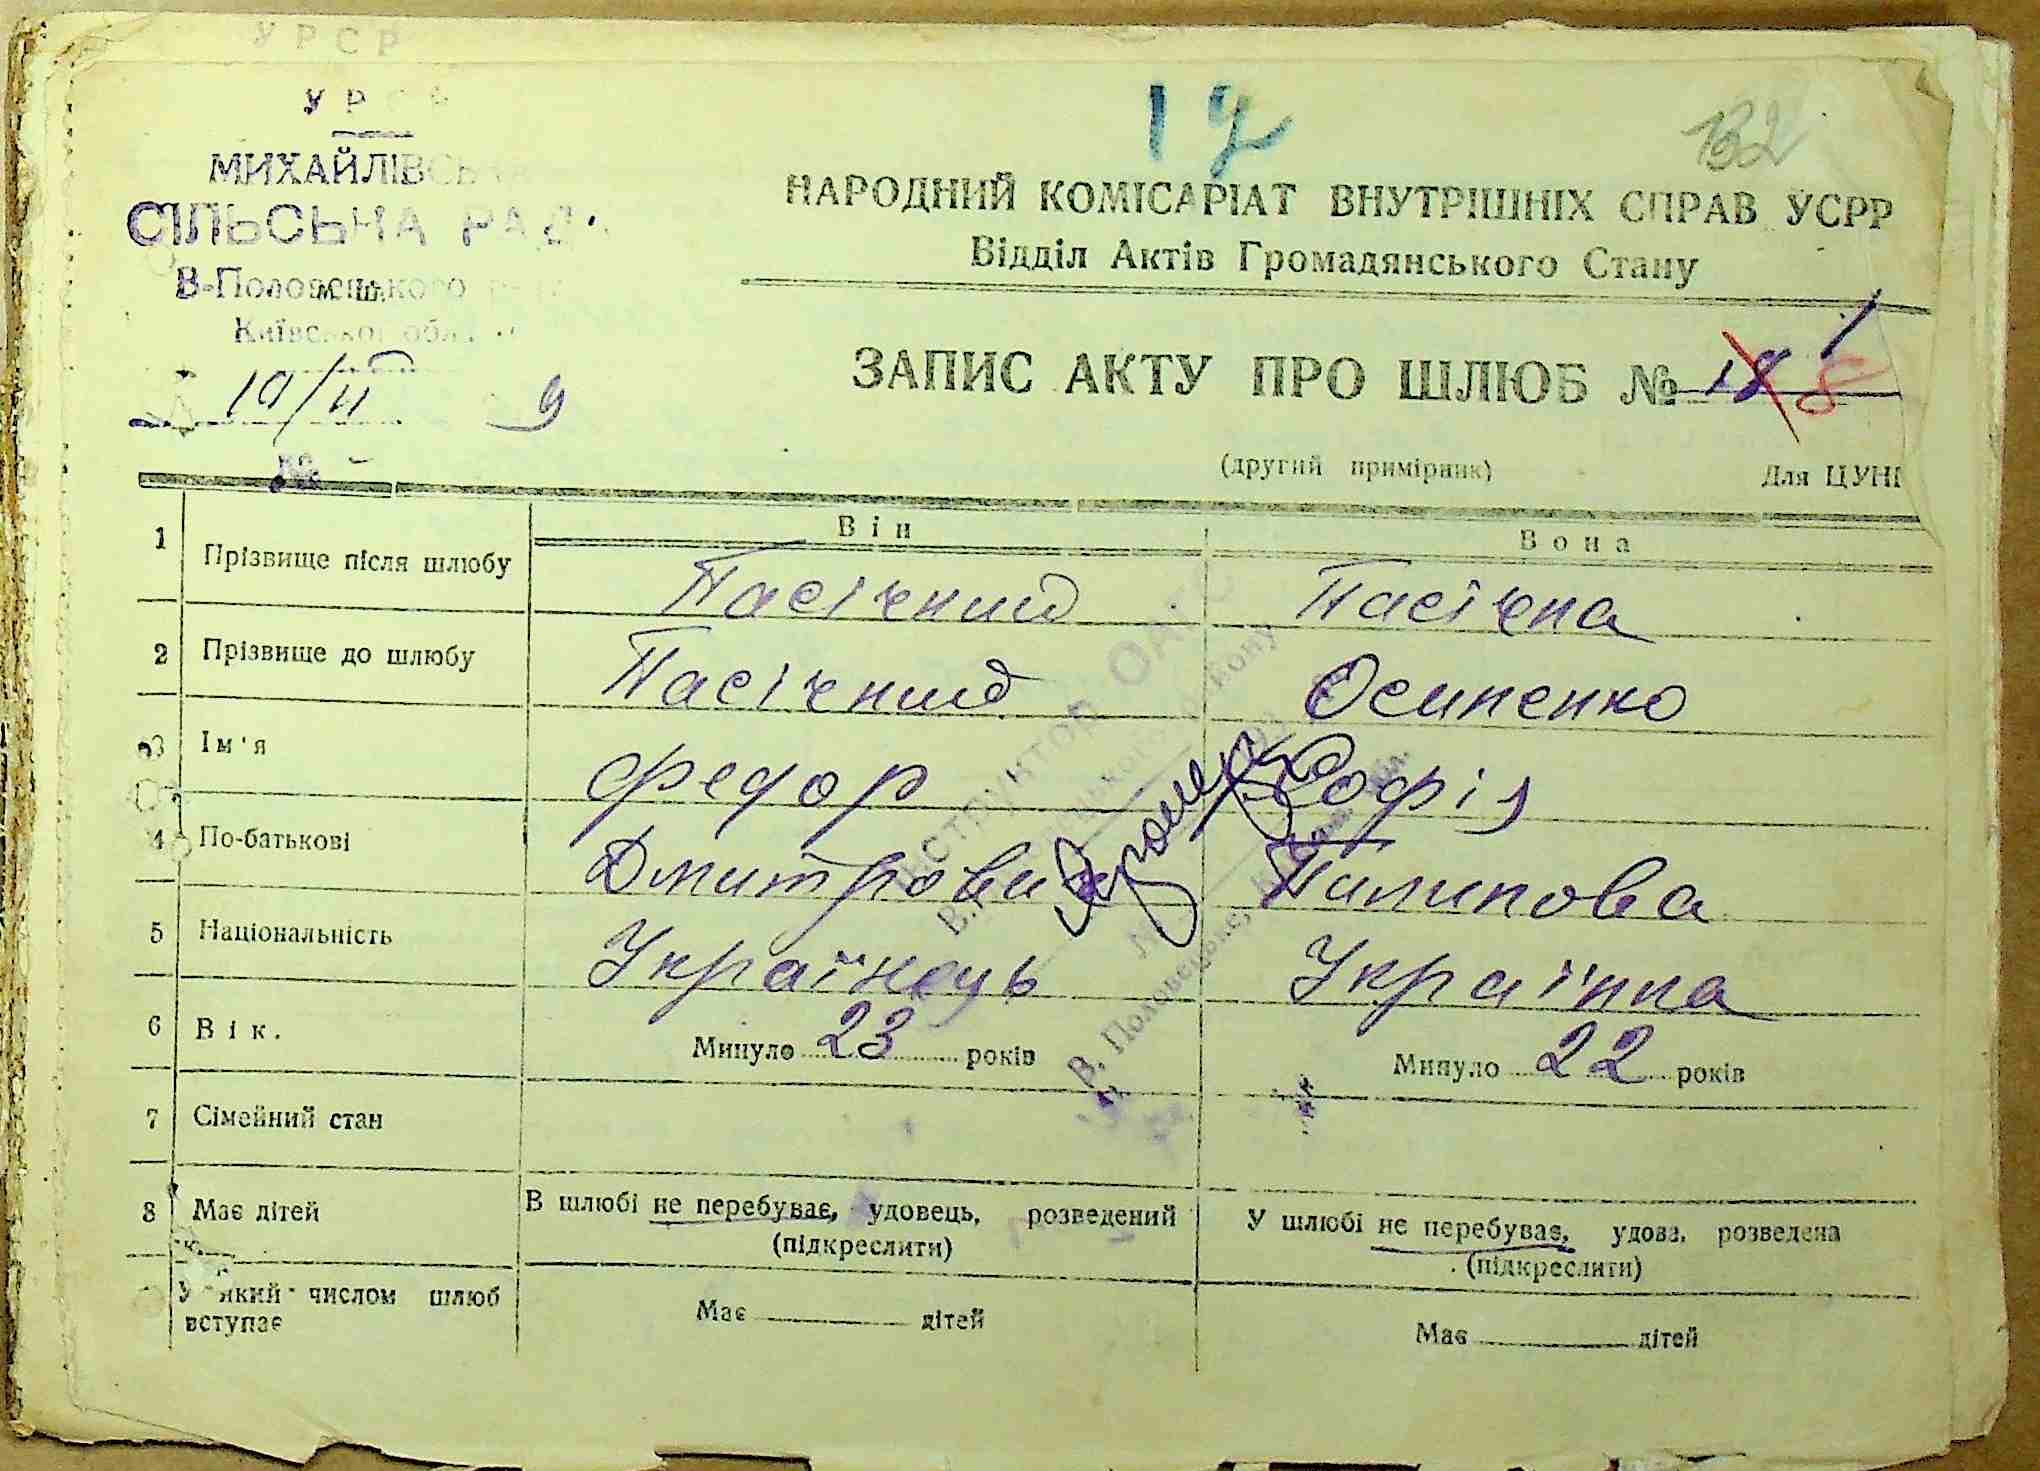 УРСР
УРСР
МИХАЙЛІВСЬКА
СІЛЬСЬКА РАДА
В-Половецького
м. ш.
Київської обл.
19/II 9
№
12
132
НАРОДНИЙ КОМІСАРІАТ ВНУТРІШНІХ СПРАВ УСРР
Відділ Актів Громадянського Стану
ЗАПИС АКТУ ПРО ШЛЮБ № 18 8 1
(другий примірник) Для ЦУНГ
Він Вона
1 Прізвище після шлюбу Пасічний Пасічна
2 Прізвище до шлюбу Пасічний Осипенко
3 Ім'я Федор Софія
4 По-батькові Дмитрович Пилипова
5 Національність Українець Українка
6 Вік. Минуло 23 років Минуло 22 років
7 Сімейний стан
8 Має дітей В шлюбі не перебуває, удовець, розведений У шлюбі не перебуває, удова, розведена
(підкреслити) (підкреслити)
У який числом шлюб вступає Має дітей Має дітей
ІНСТРУКТОР ОАГС
В. Половецького району
В. Половецьке,